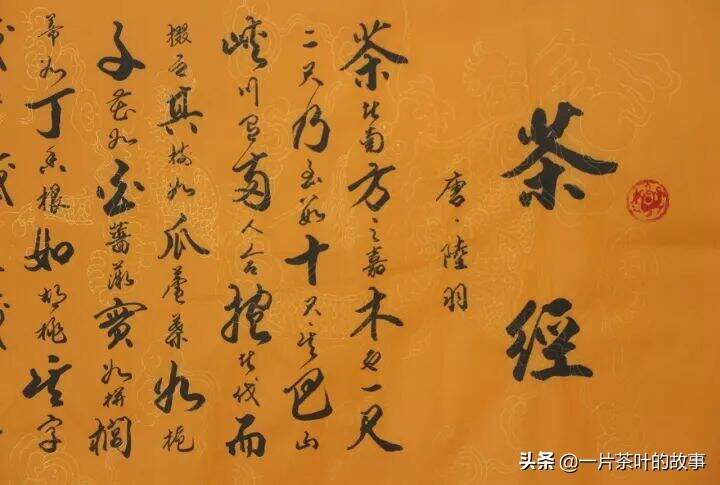 茶經
唐、陸羽
茶者南方之嘉木也一尺
二尺乃至數十尺其巴山
峽川有兩人合抱者伐而
掇之其樹如瓜蘆葉如梔
子花如白薔薇實如栟櫚
蒂如丁香根如胡桃其字
头条 @一片茶叶的故事